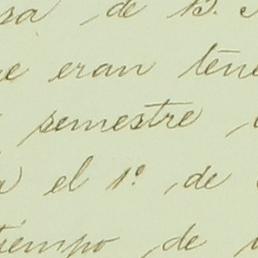 de B.
eran
semestre
el 1º. de
tiempo de